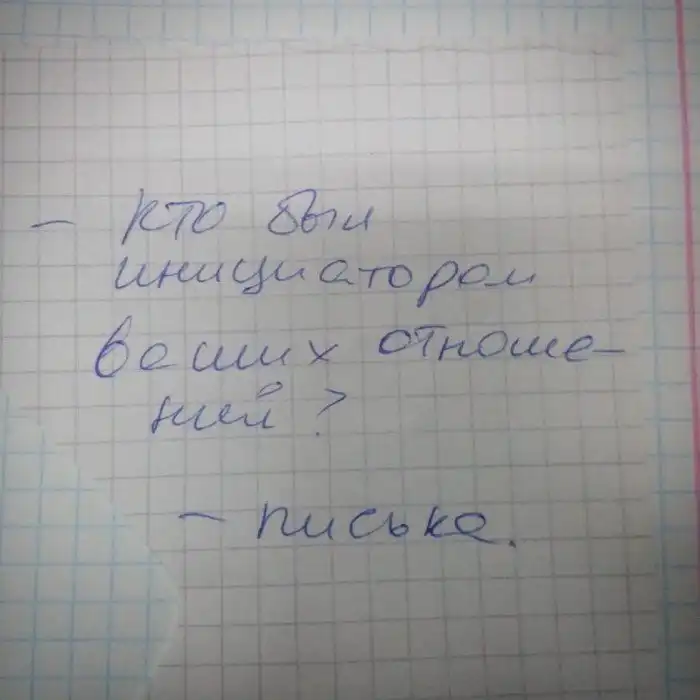 — кто был
инициатором
ваших отноше-
ний?
— писька.